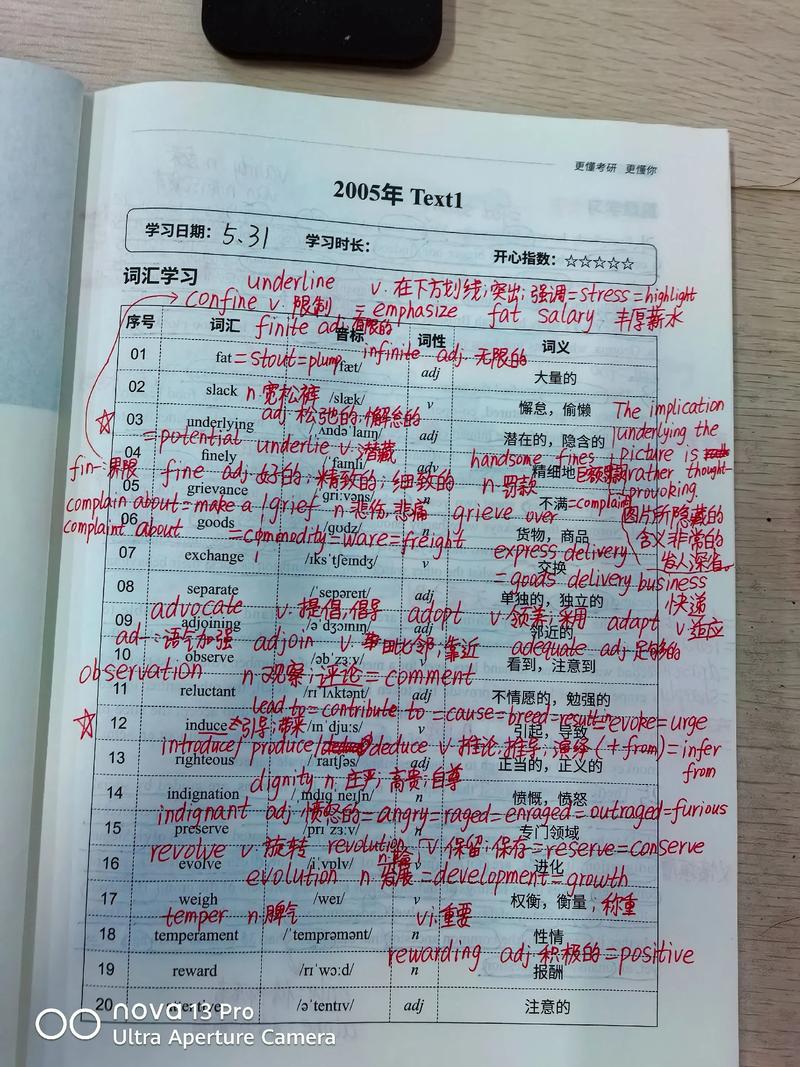 更懂考研 更懂你
2005年 Text1
学习日期: 5.31 学习时长: 开心指数: ☆☆☆☆☆
词汇学习
underline v. 在下方划线;突出;强调=stress=highlight
confine v. 限制 = emphasize fat salary 丰厚薪水
序号 词汇 音标 词性 词义
finite adj. 有限的
infinite adj. 无限的
01 fat =stout=plump /fæt/ adj 大量的
02 slack n.宽松裤 /slæk/ v 懈怠，偷懒
adj. 松弛的;懈怠的
☆ 03 underlying /ˌʌndəˈlaɪɪŋ/ adj 潜在的，隐含的
=potential underlie v. 潜藏
The implication
underlying the
picture is
rather thought-
provoking.
图片所隐藏的
含义非常的
发人深省。
04 finely /ˈfaɪnli/ adv 精细地
handsome fines 巨额罚款
fin-:界限 fine adj. 好的;精致的;细致的 n. 罚款
05 grievance /ˈɡriːvəns/ n 不满=complain
complain about=make a grief n. 悲伤,悲痛 grieve over
complaint about
06 goods /ɡʊdz/ n 货物，商品
=commodity=ware=freight
07 exchange /ɪksˈtʃeɪndʒ/ v 交换
express delivery
=goods delivery business
快递
08 separate /ˈsepəreɪt/ adj 单独的，独立的
advocate v. 提倡;倡导 adopt v. 领养;采用 adapt v. 适应
09 adjoining /əˈdʒɔɪnɪŋ/ adj 邻近的
ad-:语气加强 adjoin v. 毗邻;靠近 adequate adj. 足够的
10 observe /əbˈzɜːv/ v 看到，注意到
observation n. 观察;评论=comment
11 reluctant /rɪˈlʌktənt/ adj 不情愿的，勉强的
lead to=contribute to=cause=breed=result in=evoke=urge
☆ 12 induce 引导;带来 /ɪnˈdjuːs/ v 引起，导致
introduce/produce/deduce v. 推论;推导;演绎(+from)=infer
from
13 righteous /ˈraɪtʃəs/ adj 正当的，正义的
dignity n. 庄严;高贵;自尊
14 indignation /ˌɪndɪɡˈneɪʃn/ n 愤慨，愤怒
indignant adj. 愤怒的=angry=raged=enraged=outraged=furious
15 preserve /prɪˈzɜːv/ n 专门领域
revolve v. 旋转 revolution v. 保留;保存=reserve=conserve
16 evolve /ɪˈvɒlv/ v 进化
evolution n. 发展=development=growth
17 weigh /weɪ/ v 权衡，衡量;称重
temper n.脾气 vi.重要
18 temperament /ˈtemprəmənt/ n 性情
rewarding adj. 积极的=positive
19 reward /rɪˈwɔːd/ n 报酬
20 attentive /əˈtentɪv/ adj 注意的
nova 13 Pro
Ultra Aperture Camera